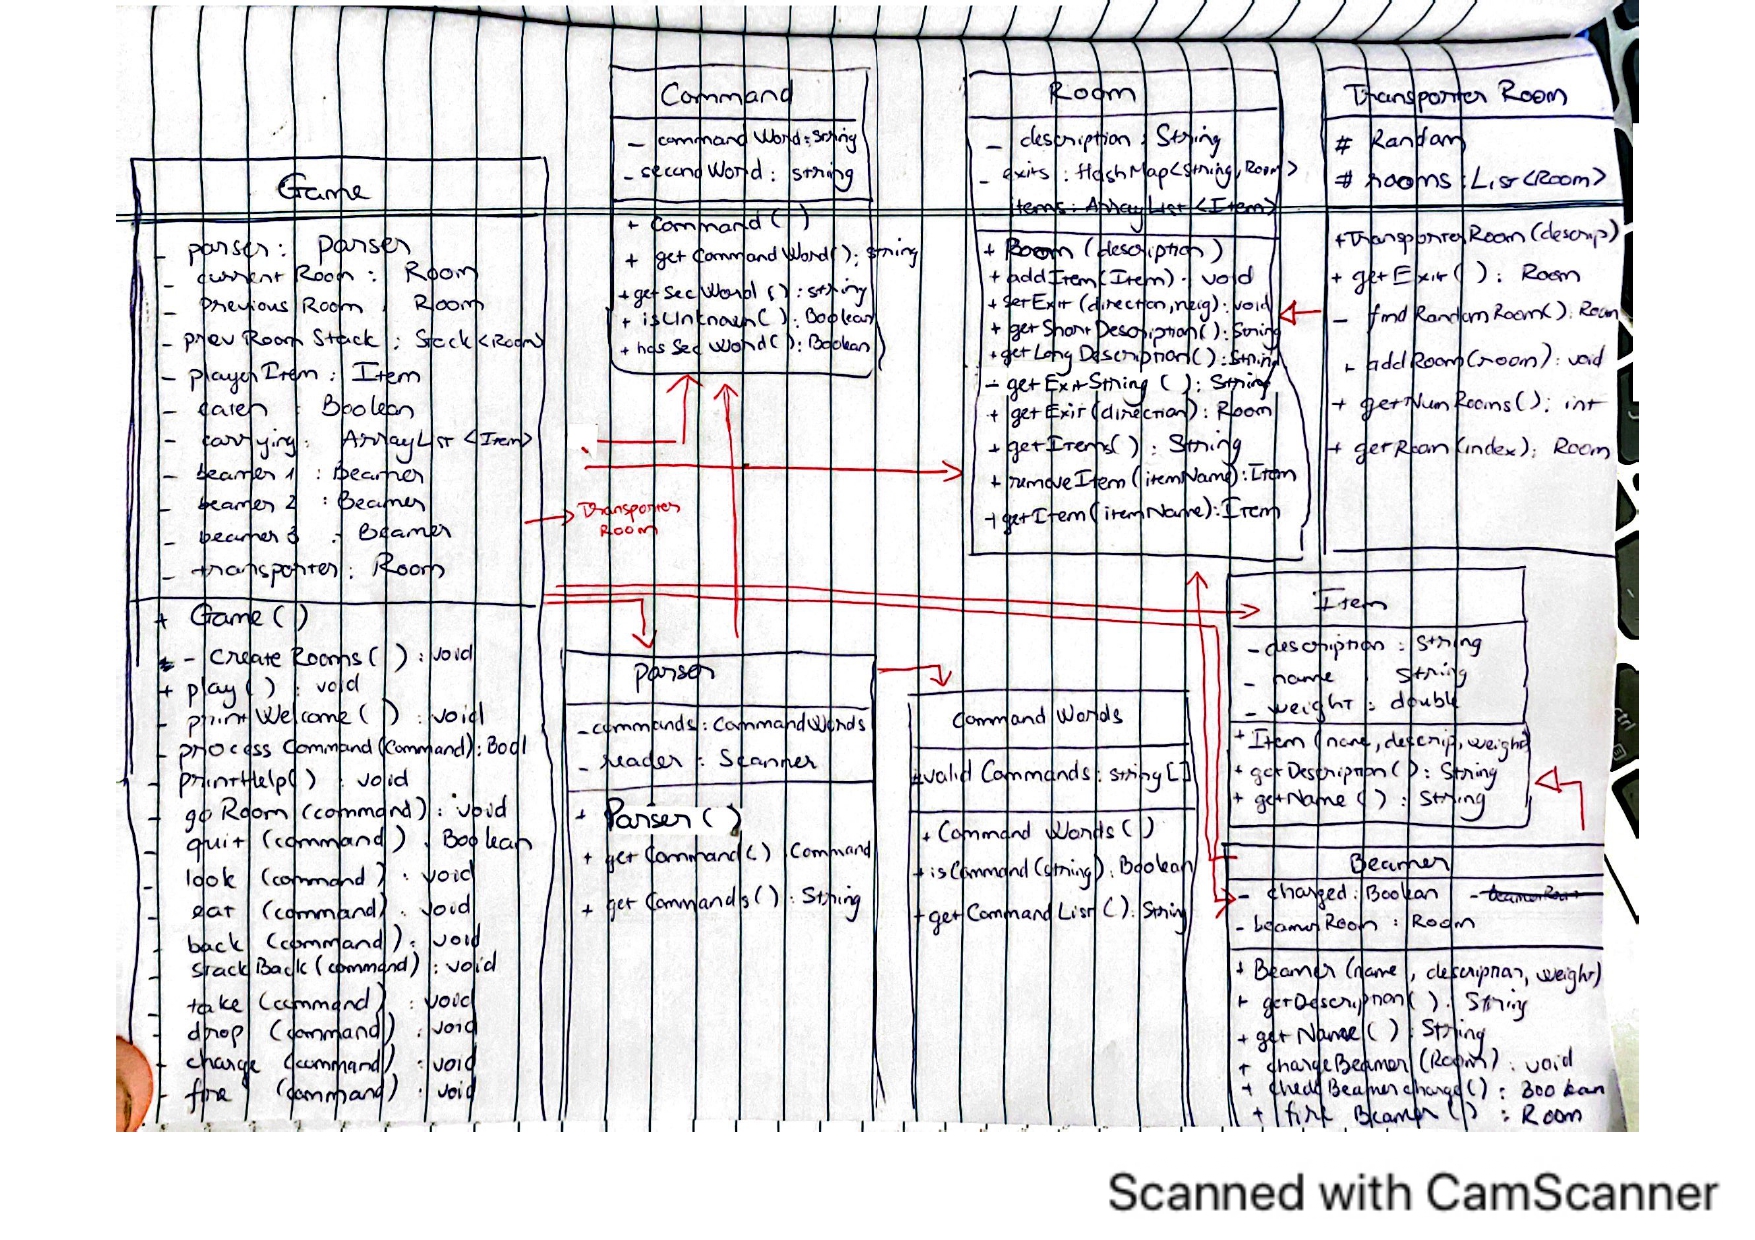 Game
- parser : parser
- current Room : Room
- Previous Room : Room
- prev Room Stack : Stack<Room>
- player Item : Item
- eaten : Boolean
- carrying : ArrayList <Item>
- beamer 1 : Beamer
- beamer 2 : Beamer
- beamer 3 : Beamer
- transporter : Room
+ Game ( )
- Create Rooms ( ) : void
+ play ( ) : void
- print Welcome ( ) : void
- process Command (command) : Bool
- printHelp( ) : void
- go Room (command) : void
- quit (command) : Boolean
- look (command) : void
- eat (command) : void
- back (command) : void
- stack Back (command) : void
- take (command) : void
- drop (command) : void
- charge (command) : void
- fire (command) : void
Command
- command Word : String
- second Word : string
+ Command ( )
+ get Command Word( ) : string
+ get Sec Word ( ) : string
+ is Unknown ( ) : Boolean
+ has Sec Word ( ) : Boolean
Room
- description : String
- exits : HashMap<String, Room>
items : ArrayList <Item>
+ Room (description)
+ add Item (Item) : void
+ setExit (direction, neig) : void
+ get Short Description ( ) : String
+ get Long Description ( ) : String
- get Exit String ( ) : String
+ get Exit (direction) : Room
+ get Items ( ) : String
+ remove Item (itemName) : Item
+ get Item (itemName) : Item
Transporter Room
# Random
# rooms : List <Room>
+ Transporter Room (descrip)
+ get Exit ( ) : Room
- find Random Room( ) : Room
+ add Room (room) : void
+ get Num Rooms ( ) : int
+ get Room (index) : Room
Transporter
Room
Parser
- commands : Command Words
- reader : Scanner
+ Parser ( )
+ get Command ( ) : Command
+ get Commands ( ) : String
Command Words
valid Commands : string [ ]
+ Command Words ( )
+ is Command (string) : Boolean
+ get Command List ( ) : String
Item
- description : String
- name : String
- weight : double
+ Item (name, descrip, weight)
+ get Description ( ) : String
+ get Name ( ) : String
Beamer
- charged : Boolean
- beamer Room : Room
+ Beamer (name, description, weight)
+ get Description ( ) : String
+ get Name ( ) : String
+ charge Beamer (Room) : void
+ check Beamer charge ( ) : Boolean
+ fire Beamer ( ) : Room
Scanned with CamScanner